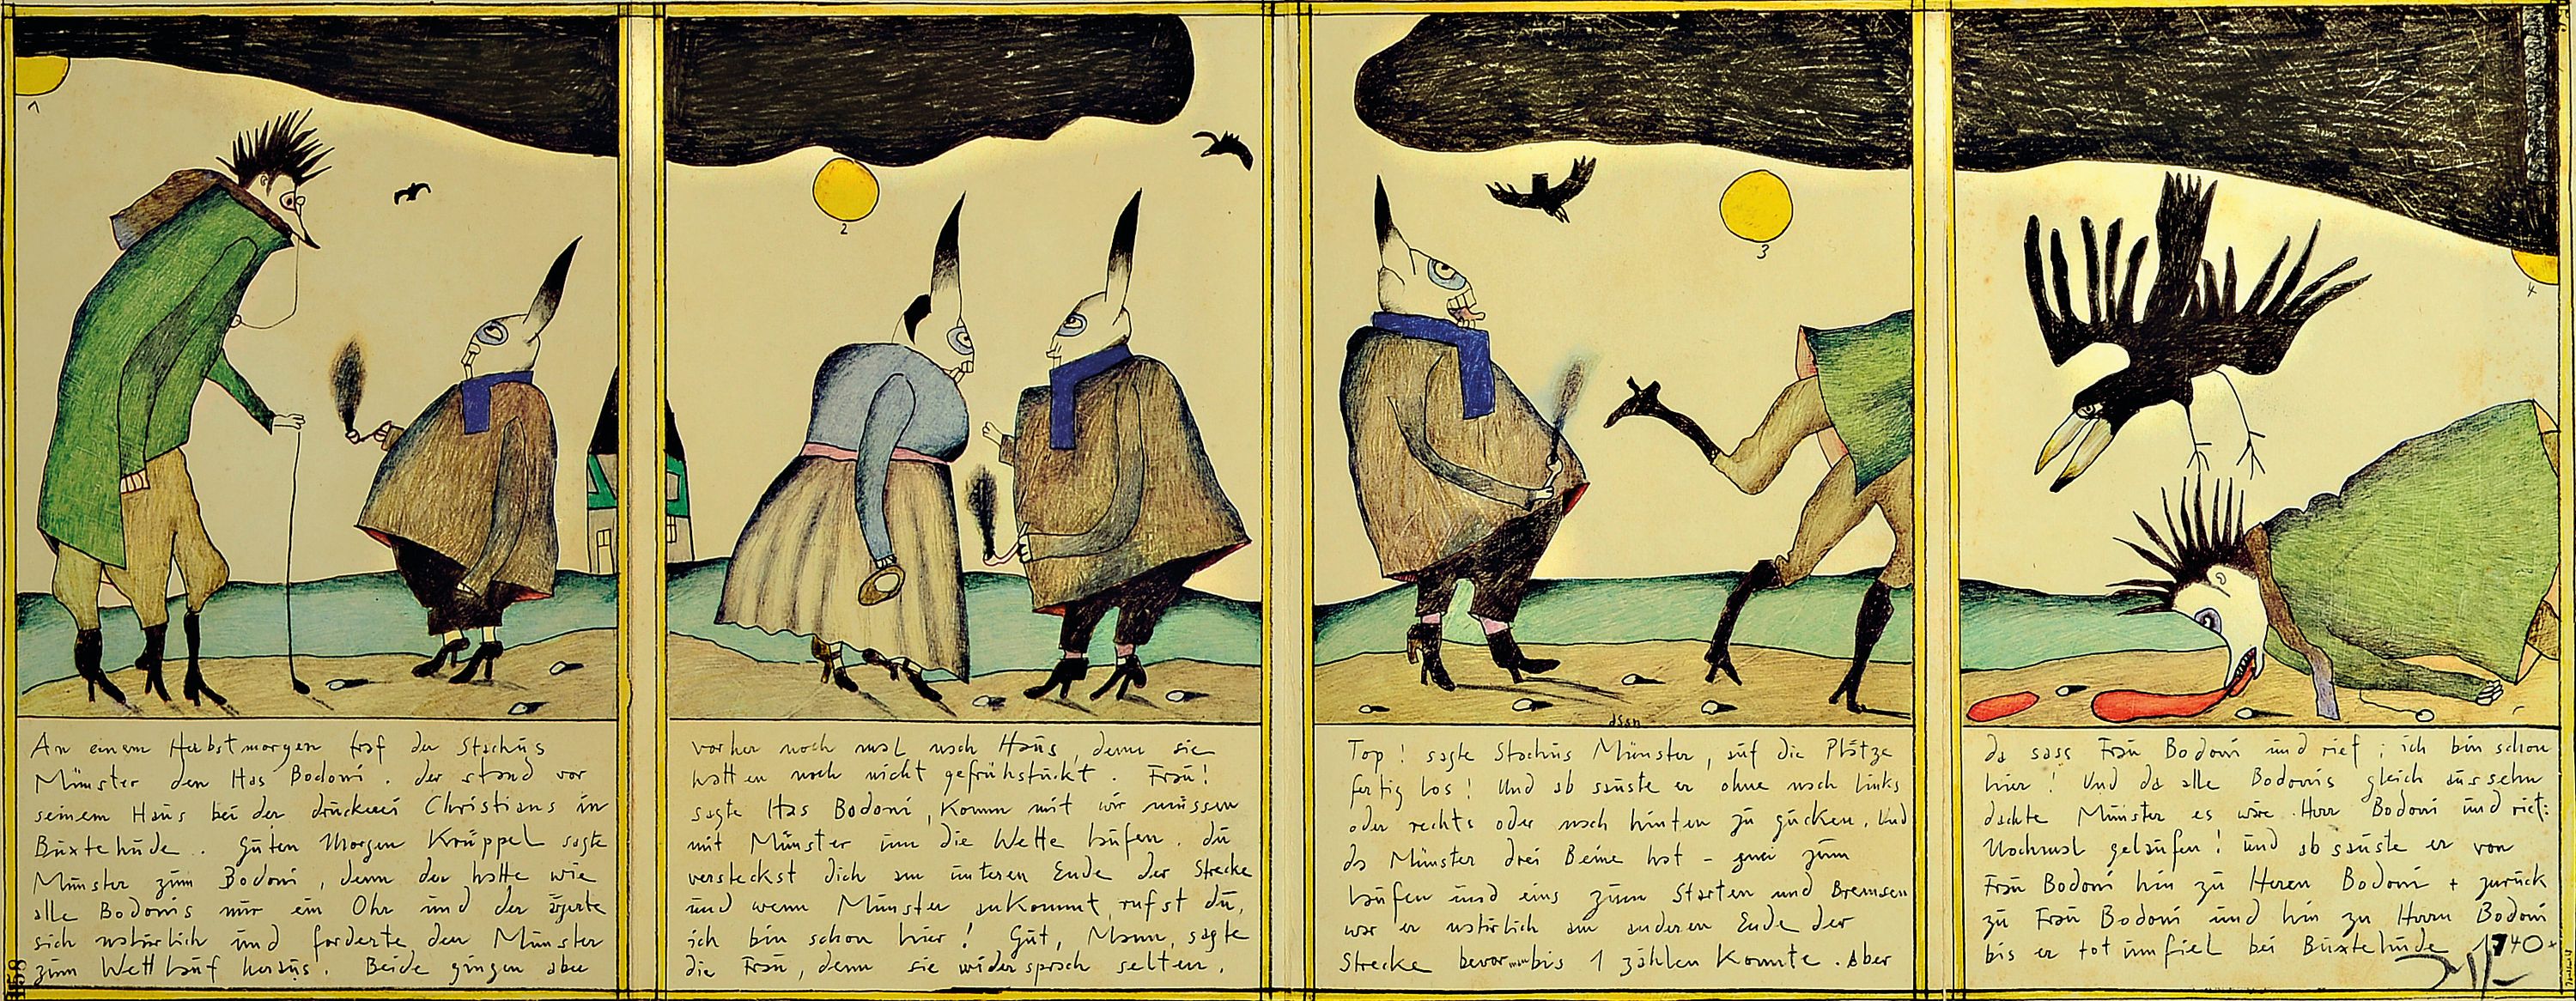 1
An einem Herbstmorgen traf der Stachus
Münster den Has Bodoni. der stand vor
seinem Haus bei der druckerei Christians in
Buxtehude. Guten Morgen Krüppel sagte
Münster zum Bodoni, denn der hatte wie
alle Bodonis nur ein Ohr und der ärgerte
sich natürlich und forderte den Münster
zum Wettlauf heraus. Beide gingen aber
2
vorher noch mal nach Haus, denn sie
hatten noch nicht gefrühstückt. Frau!
sagte Has Bodoni, Komm mit wir müssen
mit Münster um die Wette laufen. du
versteckst dich am unteren Ende der Strecke
und wenn Münster ankommt, rufst du,
ich bin schon hier! Gut, Mann, sagte
die Frau, denn sie widersprach selten.
3
Top! sagte Stachus Münster, auf die Plätze
fertig los! Und ab sauste er ohne nach links
oder rechts oder nach hinten zu gucken. Und
da Münster drei Beine hat - zwei zum
laufen und eins zum Starten und Bremsen
war er natürlich am anderen Ende der
Strecke bevor man bis 1 zählen konnte. Aber
4
da sass Frau Bodoni und rief: ich bin schon
hier! Und da alle Bodonis gleich aussehn
dachte Münster es wäre Herr Bodoni und rief:
Nochmal gelaufen! und ab sauste er von
Frau Bodoni hin zu Herrn Bodoni + zurück
zu Frau Bodoni und hin zu Herrn Bodoni
bis er tot umfiel bei Buxtehude 1740